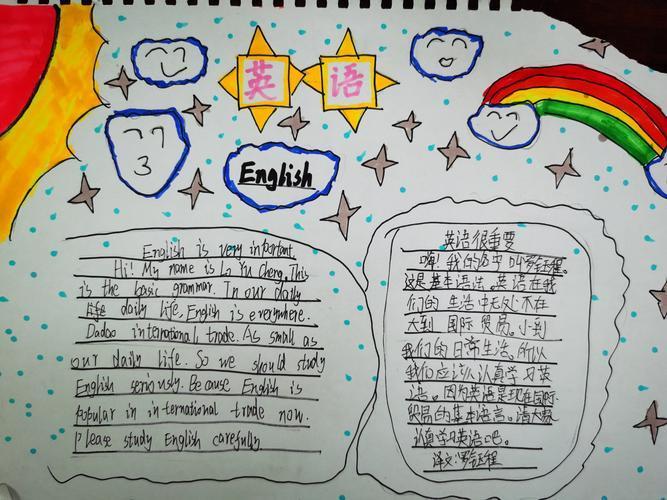 英语
English
English is very inportant.
Hi! My name is Lo Yu Cheng. This
is the basic grammar. In our daily
life daily life. English is everywhere.
Dadao international trade. As small as
our daily life. So we should study
English seriously. Because English is
popular in international trade now.
Please study English carefully
英语很重要
嗨!我的名中叫罗钰程。
这是基本语法。英语在我
们的生活中无处不在
大到国际贸易。小到
我们的日常生活。所以
我们应该认认真学习英
语。因为英语是现在国际
贸易的基本语言。请大家
认真学习英语吧。
译文:罗钰程